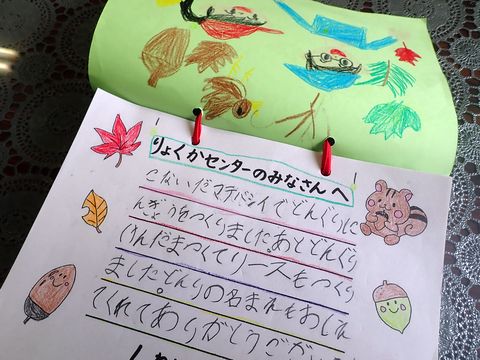 りょくかセンターのみなさんへ
こないだマテバシイでどんぐりに
んぎょうをつくりました。あとどんぐり
けんだまつくてリースもつくり
ました。どんりの名まえをおしえ
てくれてありがとうござい